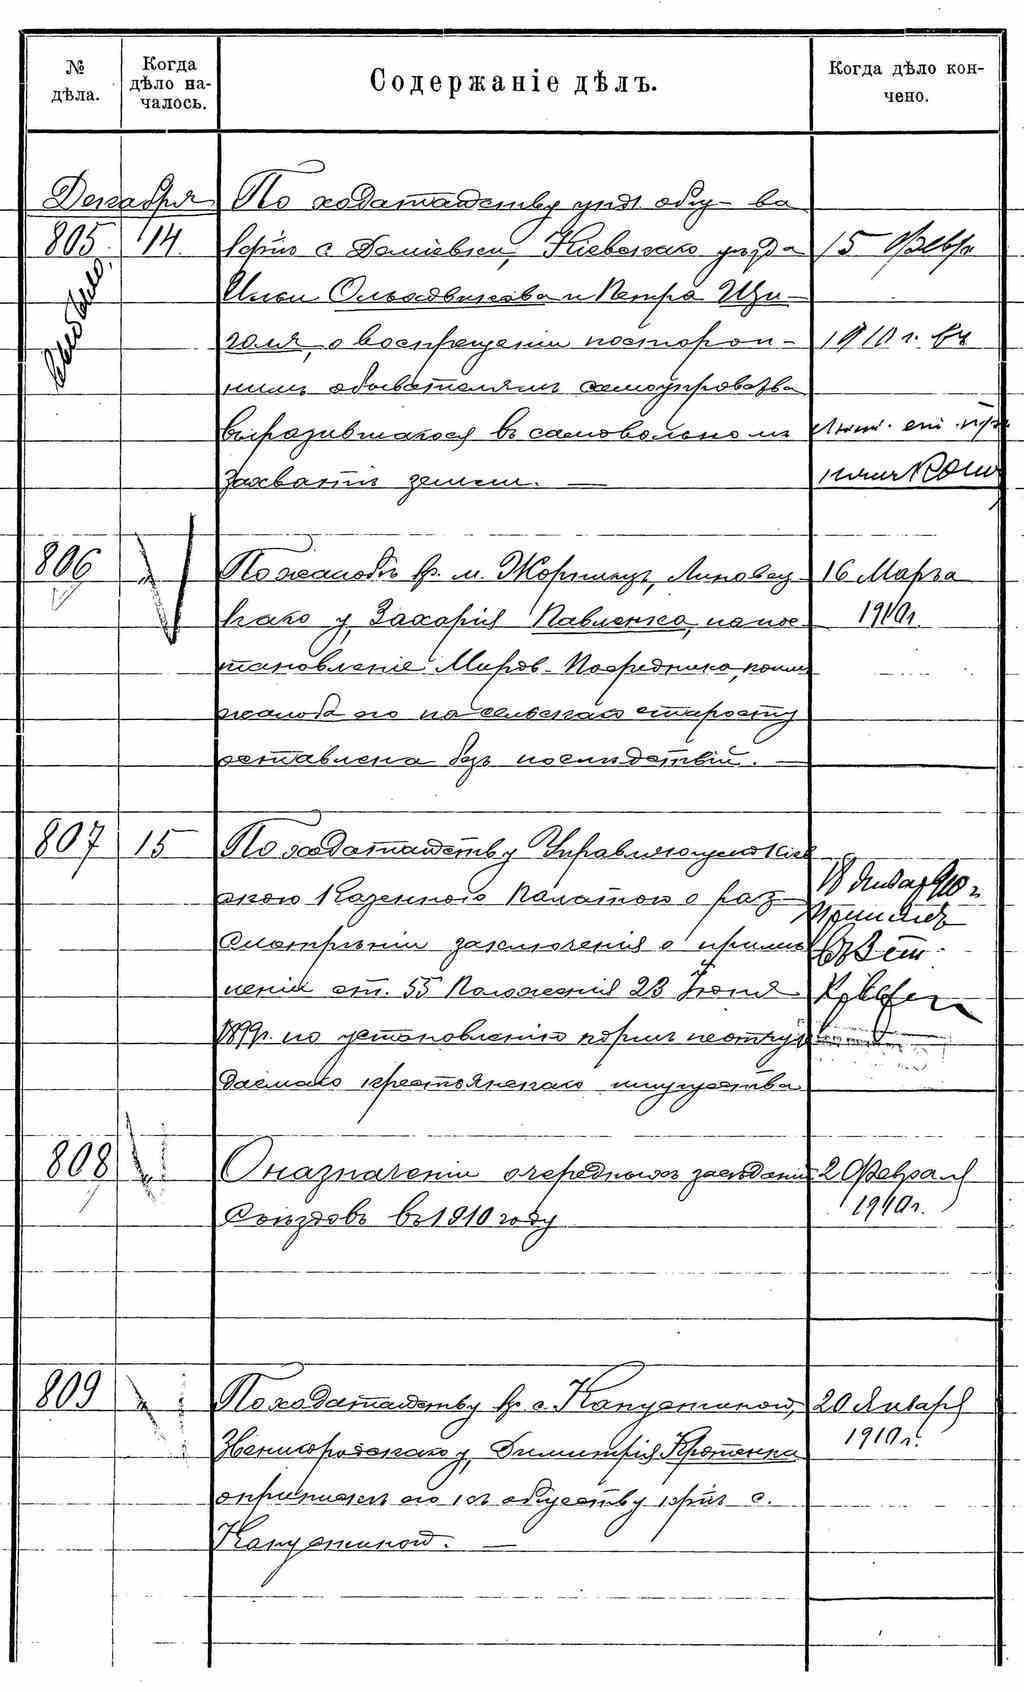 № дѣла.
Когда дѣло на-
чалось.
Содержаніе дѣлъ.
Когда дѣло кон-
чено.
Декабря
805
14.
По ходатайству упл. общ-ва
крѣнъ с. Деміевки, Кіевскаго уѣзда
Ильи Ольховикова и Петра Щи-
голя, о воспрещеніи посторон-
нимъ обывателямъ самоуправства
выразившагося въ самовольномъ
захватѣ земли. —
15 Февр.
1910 г.
806
"
По жалобѣ кр. м. Жорнищъ, Липовец-
каго у, Захарія Павленко, на пос-
тановленіе Миров. Посредника, коимъ
жалоба его на сельскаго старосту
оставлена безъ послѣдствій. —
16 Марта
1910 г.
807
15
По ходатайству Управляющаго Кіев
скою Казенною Палатою о раз-
смотрѣніи заключенія о примѣ
неніи ст. 55 Положенія 23 Іюня
1899 г. по установленію нормъ неотчуж
даемаго крестьянскаго имущества
18 Января 910 г.
808
"
О назначеніи очередныхъ засѣданій
Съѣздовъ въ 1910 году
2 Февраля
1910 г.
809
"
По ходатайству кр. с. Капустиной,
Звенигородскаго у, Димитрія Кротенка
о припискѣ его къ обществу крѣнъ с.
Капустиной. —
20 Января
1910 г.